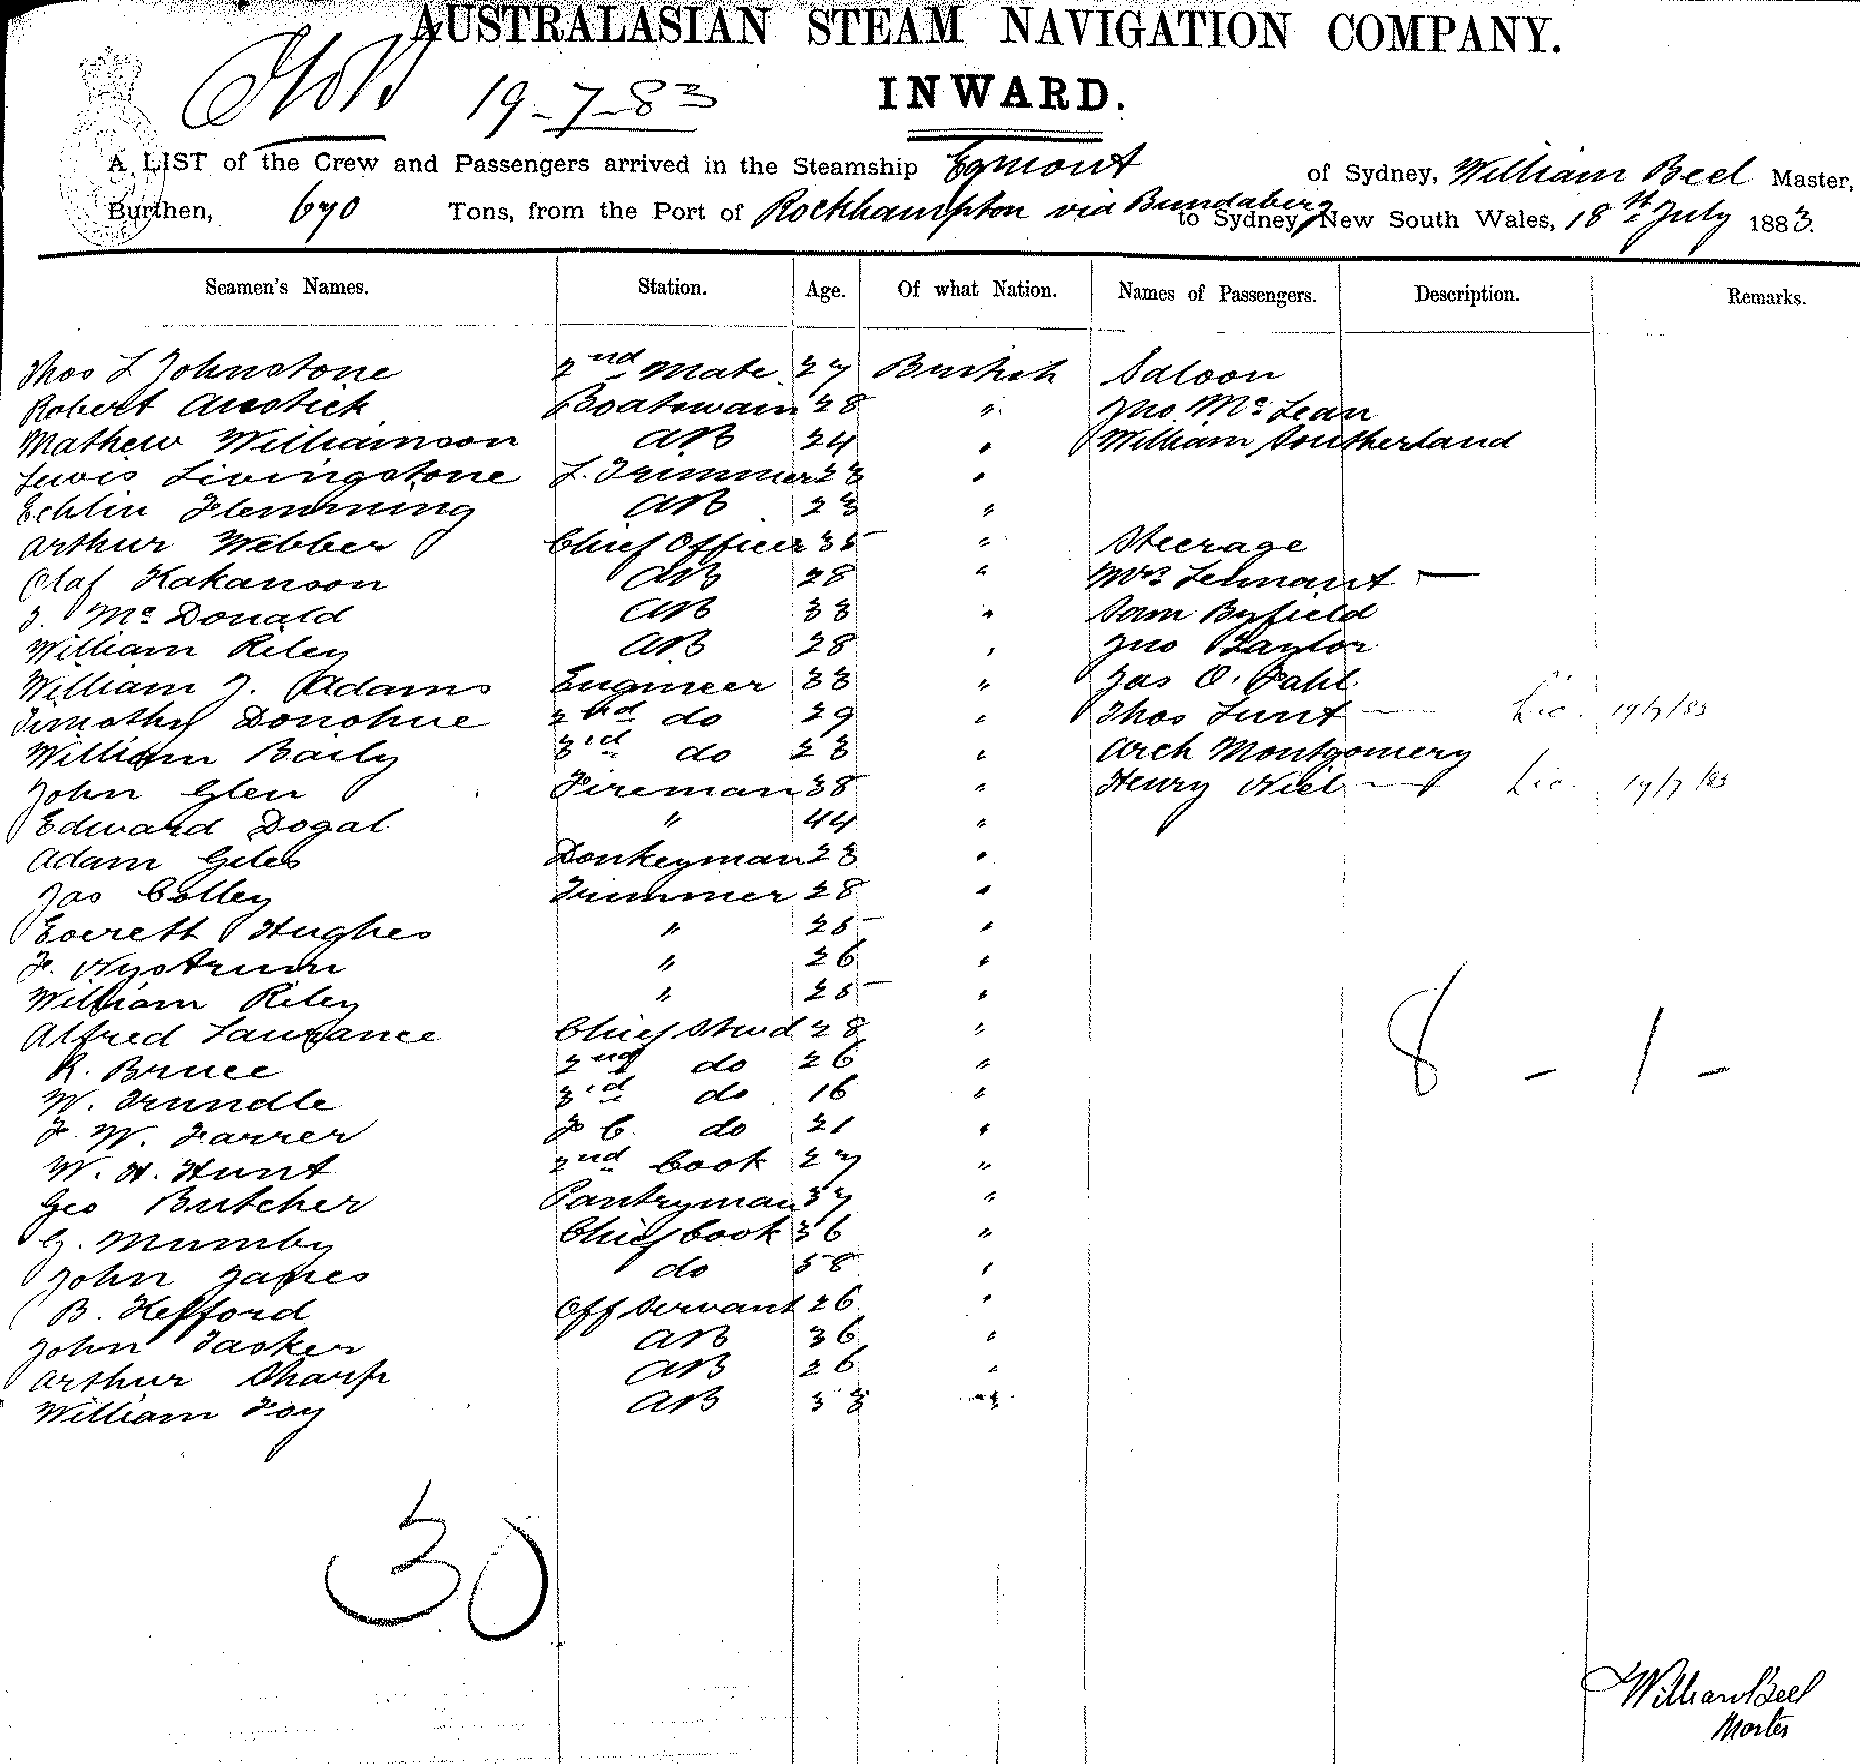 AUSTRALASIAN STEAM NAVIGATION COMPANY.
19-7-83
INWARD.
A LIST of the Crew and Passengers arrived in the Steamship Egmont of Sydney, William Beel Master,
Burthen, 670 Tons, from the Port of Rockhampton via Bundaberg to Sydney, New South Wales, 18th July 1883.
Seamen's Names. Station. Age. Of what Nation. Names of Passengers. Description. Remarks.
Thos L Johnstone 2nd Mate 27 British Saloon
Robert Austick Boatswain 28 " Jno McLean
Mathew Williamson AB 24 " William Sutherland
Lewis Livingstone L. Trimmer 23 "
Echlin Flemming AB 23 "
Arthur Webber Chief Officer 35 " Steerage
Olaf Hakanson AB 28 " Mrs Tennant —
J. McDonald AB 33 " Sam Byfield
William Riley AB 28 " Jno Taylor
William J. Adams Engineer 33 " Jas O. Pahl
Timothy Donohue 2nd do 29 " Thos Lunt — Lic. 19/7/83
William Baily 3rd do 23 " Arch Montgomery
John Glen Fireman 38 " Henry Niel — Lic. 19/7/83
Edward Dogal " 44 "
Adam Giles Donkeyman 23 "
Jas Colley Trimmer 28 "
Everett Hughes " 25 "
F. Nystrum " 26 "
William Riley " 25 "
Alfred Laurance Chief Stwd 28 "
R. Bruce 2nd do 26 "
W. Trundle 3rd do 16 "
F. W. Farrer F C. do 21 "
W. H. Hunt 2nd Cook 27 "
Geo Butcher Pantryman 37 "
G. Mumby Chief Cook 36 "
John James do 58 "
B. Hefford Off Servant 26 "
John Tasker AB 36 "
Arthur Sharp AB 26 "
William Foy AB 33 "
8 - 1 -
30
William Beel
Master